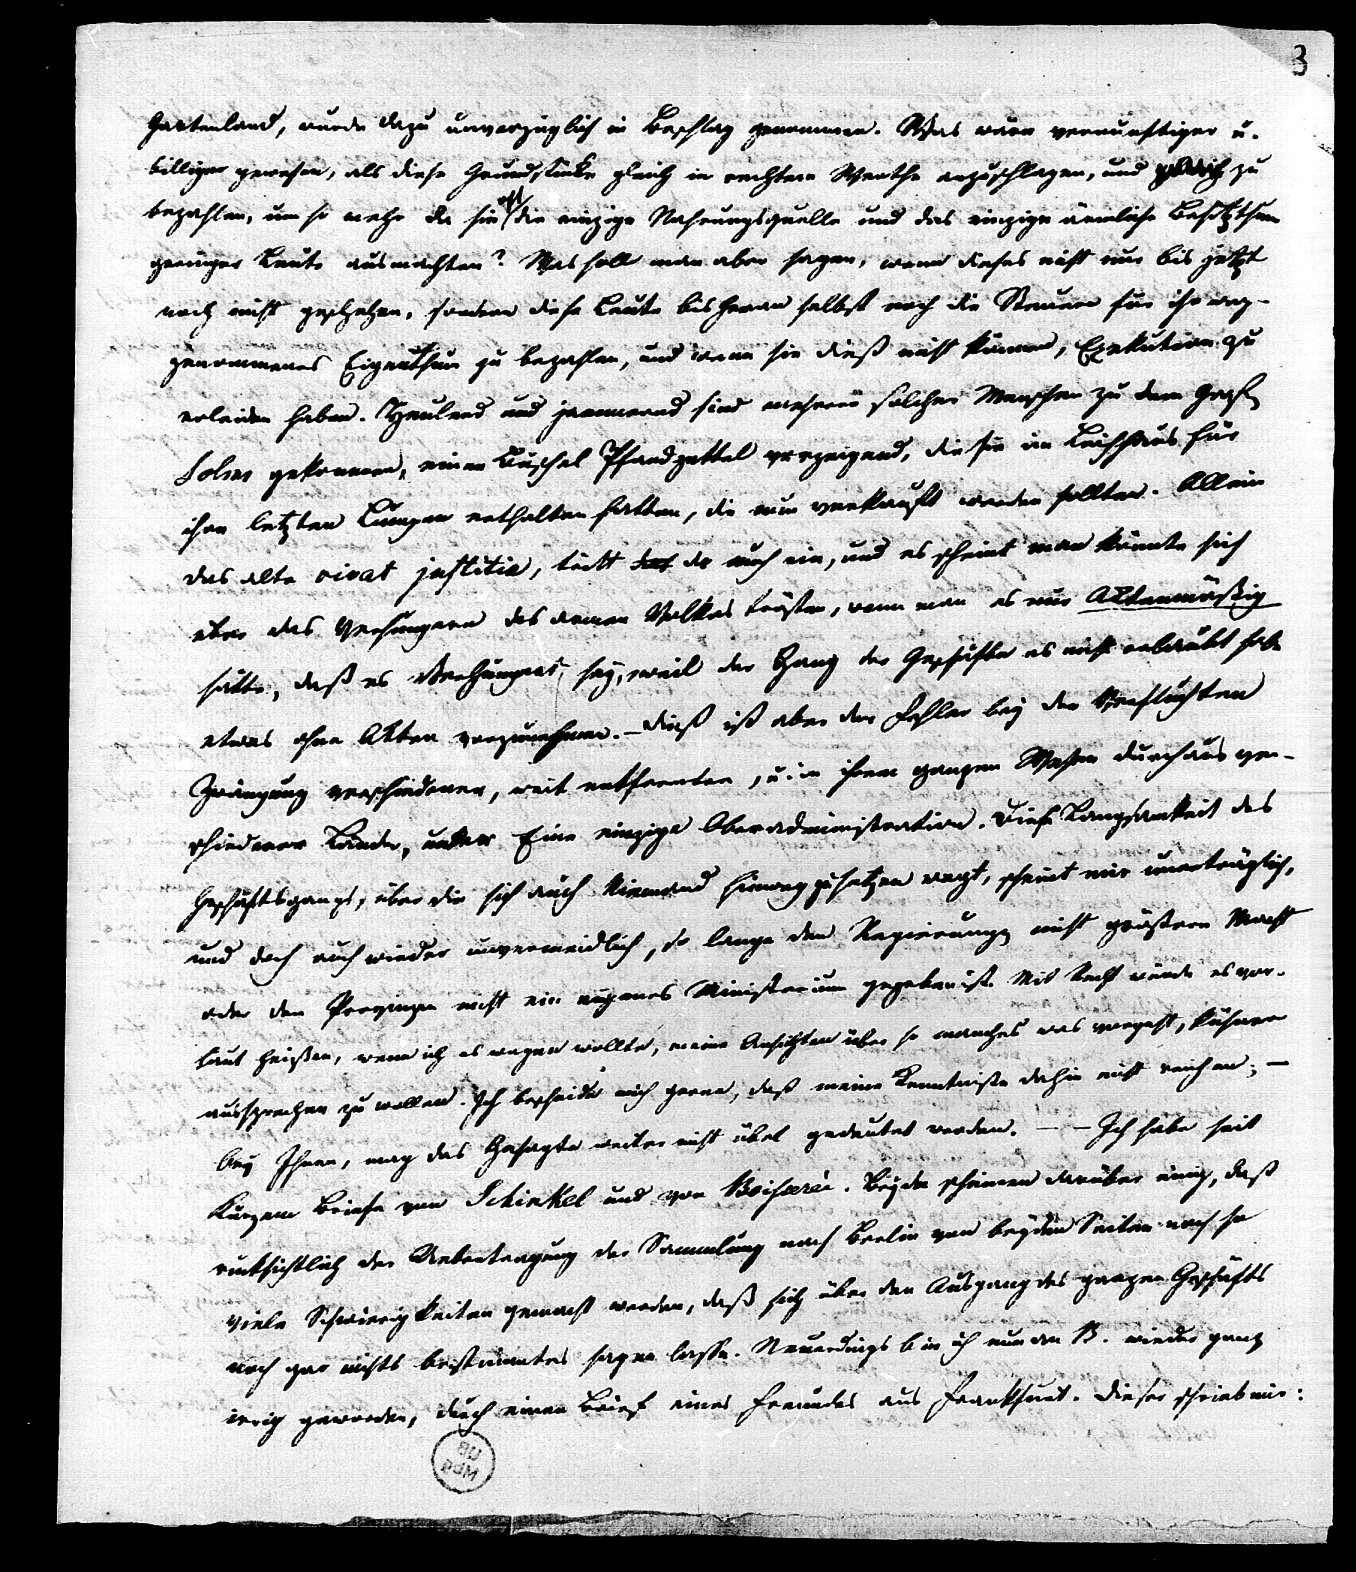 3
Gartenland, wurde dazu unverzüglich in Beschlag genommen. Was wäre vernünftiger u.
billiger gewesen, als diese Grundstücke gleich in rechtem Werthe anzuschlagen, und gleich zu
bezahlen, um so mehr da sie oft die einzige Nahrungsquelle und das einzige ärmliche Besitzthum
geringer Leute ausmachten? Was soll man aber sagen, wenn dieses nicht nur bis jetzt
noch nicht geschehen, sondern diese Leute bisheran selbst noch die Steuern für ihr weg-
genommenes Eigenthum zu bezahlen, und wenn sie dieß nicht können, Exekution zu
erleiden haben. Heulend und jammernd sind mehrere solcher Menschen zu dem Graf
Solms gekommen, einen Büschel Pfandzettel vorzeigend, die sie im Leihhaus für
ihre letzten Lumpen erhalten hatten, die nun verkauft werden sollten. Allein
das alte vivat justitia, tritt da auch ein, und es scheint man könnte sich
über das Verhungern des armen Volkes trösten, wenn man es nur Aktenmäßig
hätte, daß es verhungert sey, weil der Gang der Geschäfte es nicht erlaubt habe
etwas ohne Akten vorzunehmen. – Dieß ist aber der Fehler bey der
Zwängung verschiedener, weit entfernter, u. in ihrem ganzen Wesen durchaus ver-
schiedener Länder, unter Eine einzige Oberadministration. Diese Langsamkeit des
Geschäftsgangs, über die sich auch Niemand hinwegzusetzen wagt, scheint mir unerträglich,
und doch auch wieder unvermeidlich, so lange den Regierungen nicht größere Macht
oder den Provinzen nicht ein eigenes Ministerium gegeben ist. Mit Recht würde es vor-
laut heißen, wenn ich es wagen wollte, meine Ansichten über so manches was vorgeht, kühner
aussprechen zu wollen. Ich bescheide mich gerne, daß meine Kenntniße dahin nicht reichen; –
bey Ihnen, mag das Gesagte weiter nicht übel gedeutet werden. – – Ich habe seit
Kurzem Briefe von Schinkel und von Boisserée. Beyde scheinen darüber einig, daß
rücksichtlich der Uebertragung der Sammlung nach Berlin von beyden Seiten noch so
viele Schwierigkeiten gemacht werden, daß sich über den Ausgang des ganzen Geschäfts
noch gar nichts bestimmtes sagen lasse. Neuerdings bin ich nun an B. wieder ganz
irrig geworden, durch einen Brief eines Freundes aus Frankfurt. Dieser schrieb mir: